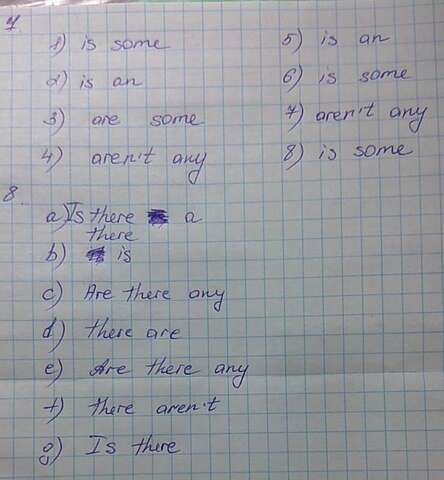 7
1) is some
2) is an
3) are some
4) aren't any
5) is an
6) is some
7) aren't any
8) is some
8.
a) Is there a
there
b) is
c) Are there any
d) there are
e) Are there any
f) there aren't
g) Is there